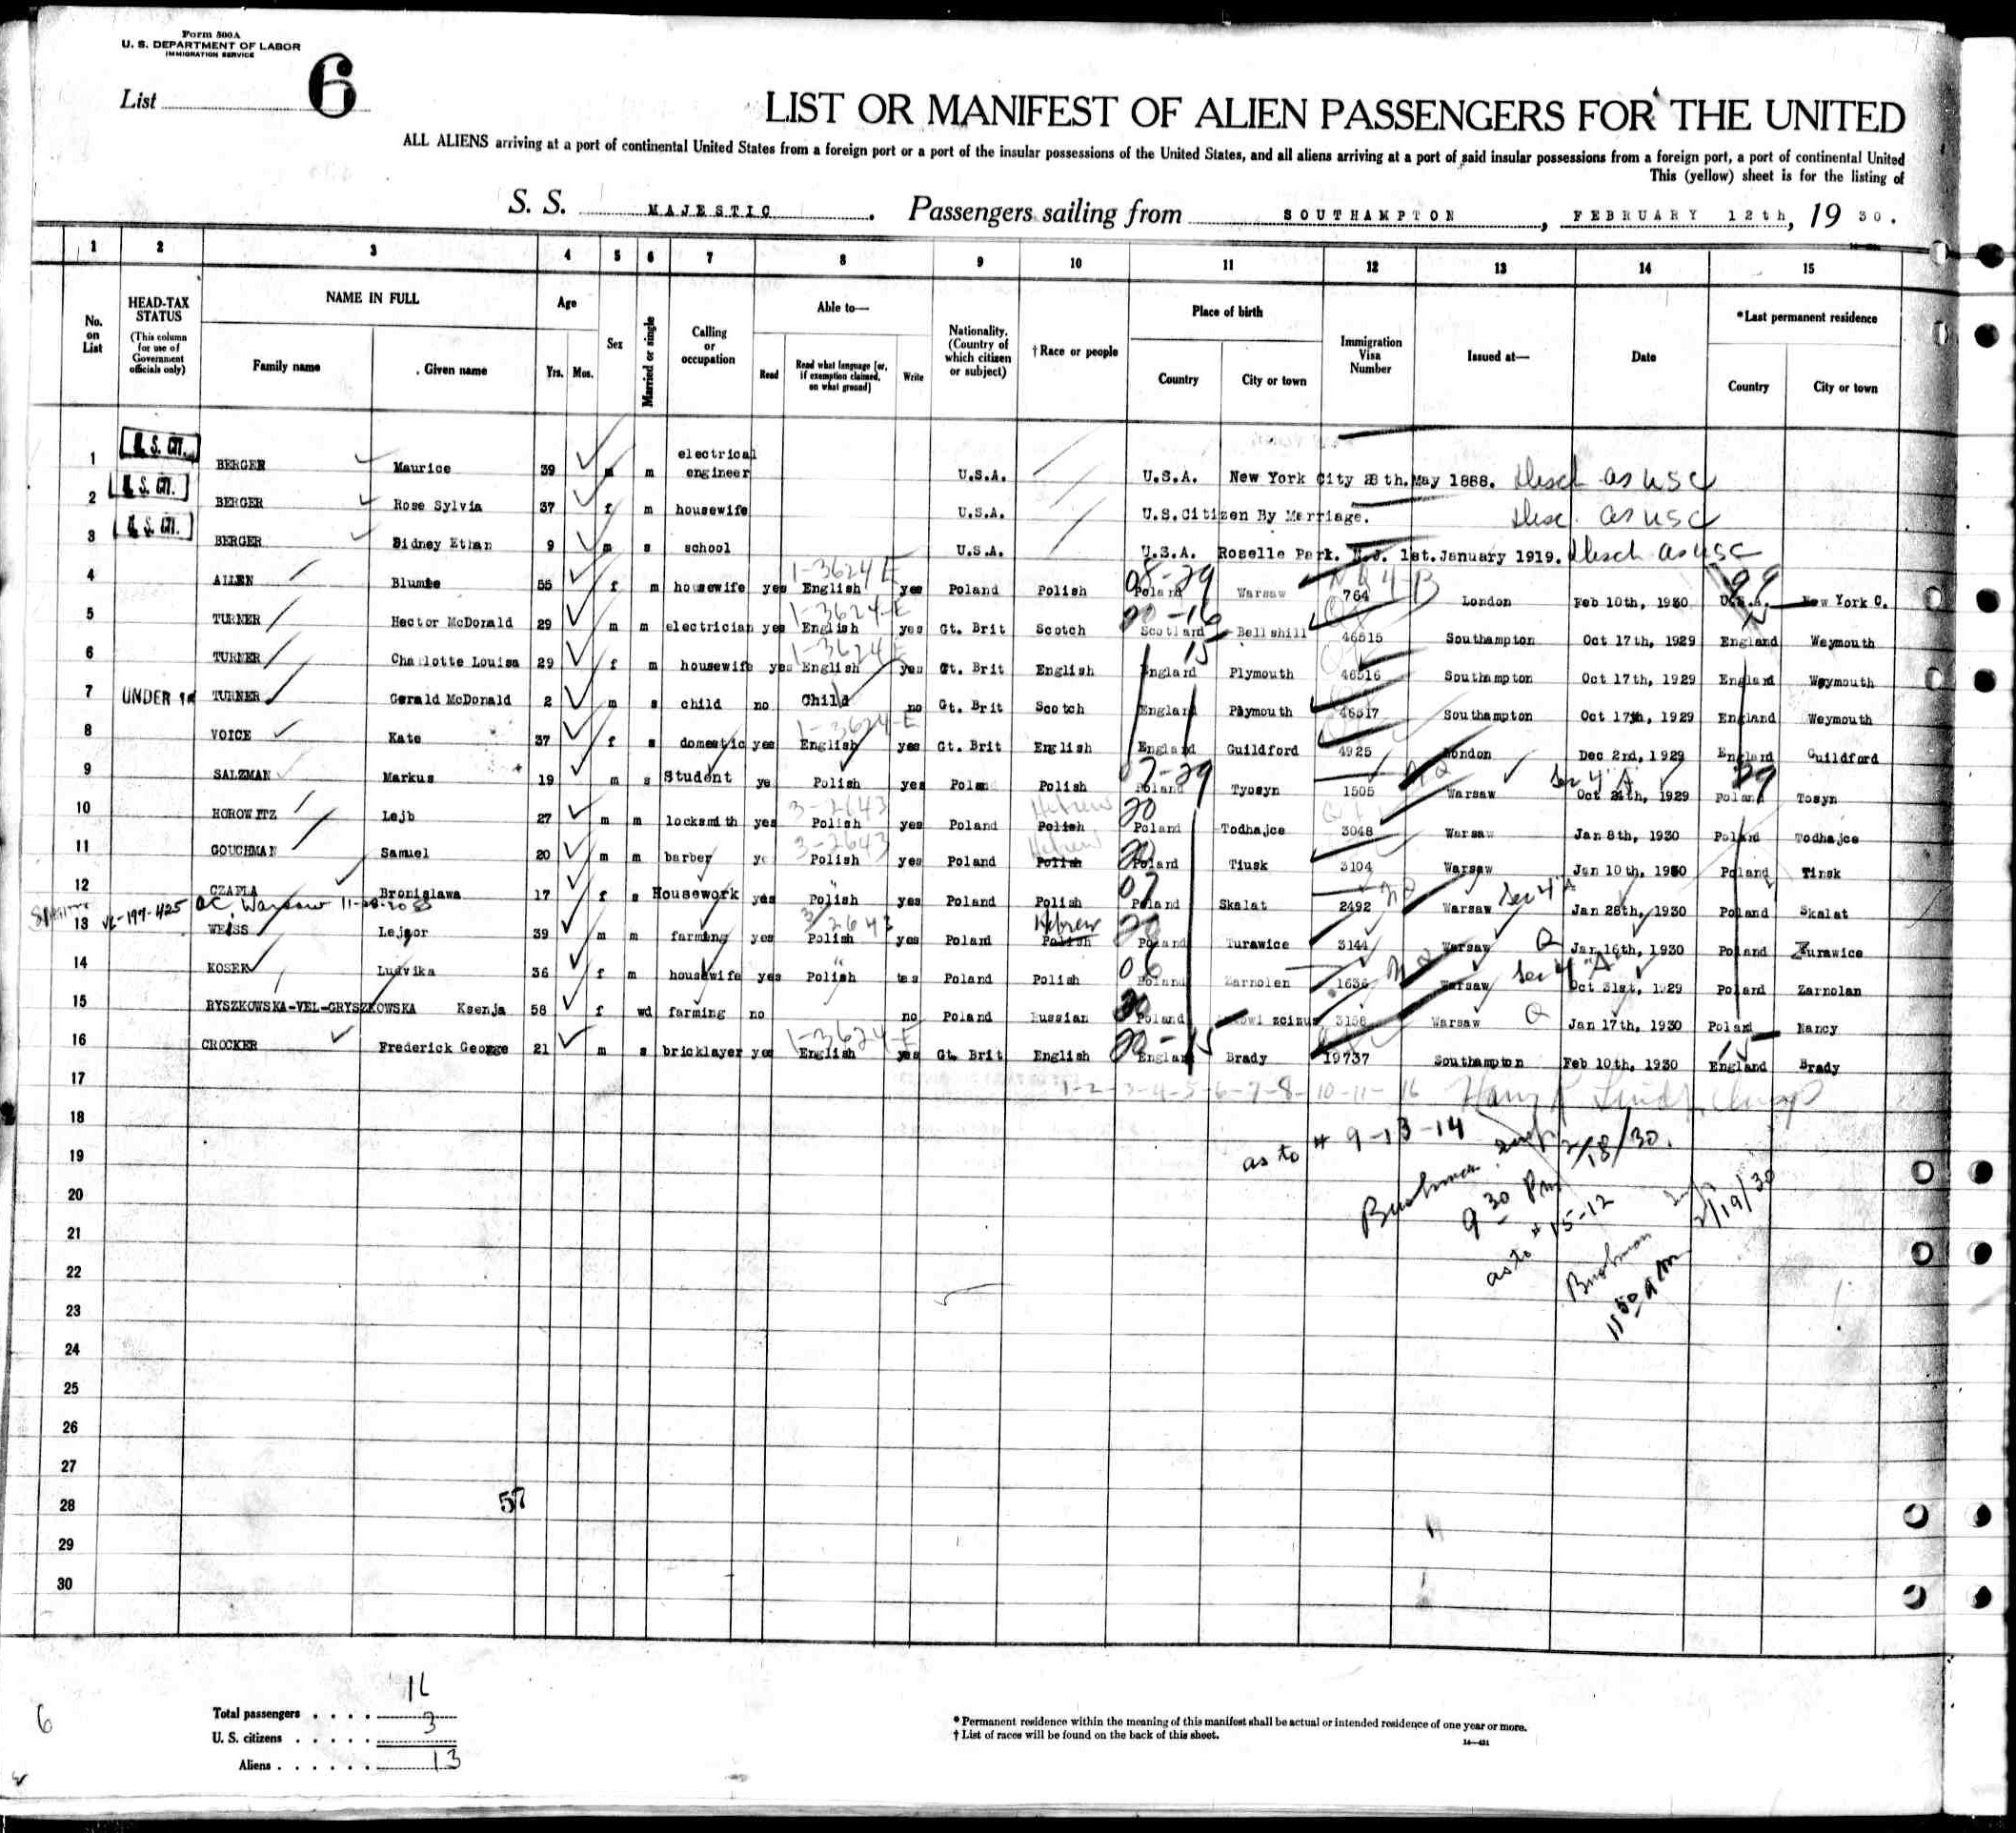 Form 500A
U. S. DEPARTMENT OF LABOR
IMMIGRATION SERVICE
List 6
LIST OR MANIFEST OF ALIEN PASSENGERS FOR THE UNITED
ALL ALIENS arriving at a port of continental United States from a foreign port or a port of the insular possessions of the United States, and all aliens arriving at a port of said insular possessions from a foreign port, a port of continental United
This (yellow) sheet is for the listing of
S. S. MAJESTIC. Passengers sailing from SOUTHAMPTON, FEBRUARY 12th, 19 30.
1 2 3 4 5 6 7 8 9 10 11 12 13 14 15
No. on List
HEAD-TAX STATUS
(This column for use of Government officials only)
NAME IN FULL
Family name
Given name
Age
Yrs. Mos.
Sex
Married or single
Calling or occupation
Able to—
Read
Read what language [or, if exemption claimed, on what ground]
Write
Nationality. (Country of which citizen or subject)
† Race or people
Place of birth
Country
City or town
Immigration Visa Number
Issued at—
Date
*Last permanent residence
Country
City or town
1 U.S. CIT. BERGER Maurice 39 m m electrical engineer U.S.A. U.S.A. New York City 28th. May 1888. as USC
2 U.S. CIT. BERGER Rose Sylvia 37 f m housewife U.S.A. U.S. Citizen By Marriage. as USC
3 U.S. CIT. BERGER Sidney Ethan 9 m s school U.S.A. U.S.A. Roselle Park. N.J. 1st. January 1919. as USC
1-3624 E 08-29
4 ALLEN Blumie 55 f m housewife yes English yes Poland Polish Poland Warsaw 764 London Feb 10th, 1930 U.S.A. New York C.
1-3624-E
5 TURNER Hector McDonald 29 m m electrician yes English yes Gt. Brit Scotch Scotland Bellshill 46515 Southampton Oct 17th, 1929 England Weymouth
1-3624 E 15
6 TURNER Charlotte Louisa 29 f m housewife yes English yes Gt. Brit English England Plymouth 46516 Southampton Oct 17th, 1929 England Weymouth
7 UNDER 16 TURNER Gerald McDonald 2 m s child no Child no Gt. Brit Scotch England Plymouth 46517 Southampton Oct 17th, 1929 England Weymouth
1-3624-E
8 VOICE Kate 37 f s domestic yes English yes Gt. Brit English England Guildford 4925 London Dec 2nd, 1929 England Guildford
07-29
9 SALZMAN Markus 19 m s Student ye Polish yes Poland Polish Poland Tyosyn 1505 Warsaw Sec 4 "A" Oct 24th, 1929 Poland Tosyn
3-2643 Hebrew 20
10 HOROWITZ Lejb 27 m m locksmith yes Polish yes Poland Polish Poland Todhajce 3048 Warsaw Jan 8th, 1930 Poland Todhajce
3-2643 Hebrew 20
11 GOUCHMAN Samuel 20 m m barber ye Polish yes Poland Polish Poland Tiusk 3104 Warsaw Jan 10th, 1930 Poland Tinsk
07
12 CZAPLA Bronislawa 17 f s Housework yes Polish yes Poland Polish Poland Skalat 2492 Warsaw Sec 4 "A" Jan 28th, 1930 Poland Skalat
Warsaw
3/2643 Hebrew
13 WEISS Lejgor 39 m m farming yes Polish yes Poland Polish Poland Turawice 3144 Warsaw Q Jan 16th, 1930 Poland Zurawice
06
14 KOSEK Ludvika 36 f m housewife yes Polish tes Poland Polish Poland Zarnolen 1636 Warsaw Sec 4 "A" Oct 31st, 1929 Poland Zarnolan
15 RYSZKOWSKA-VEL-GRYSZKOWSKA Ksenja 58 f wd farming no no Poland Russian Poland 3158 Warsaw Q Jan 17th, 1930 Poland Nancy
1-3624-E
16 CROCKER Frederick George 21 m s bricklayer yes English yes Gt. Brit English England Brady 19737 Southampton Feb 10th, 1930 England Brady
17
1-2-3-4-5-6-7-8-10-11-16
18
as to # 9-13-14
19
2/18/30.
20
9 30 Pm
21
as to # 15-12
2/19/30
22
11 50 am
23
24
25
26
27
28
57
29
30
Total passengers . . . . 16
U. S. citizens . . . . . 3
Aliens . . . . . . 13
6
* Permanent residence within the meaning of this manifest shall be actual or intended residence of one year or more.
† List of races will be found on the back of this sheet.
14—421